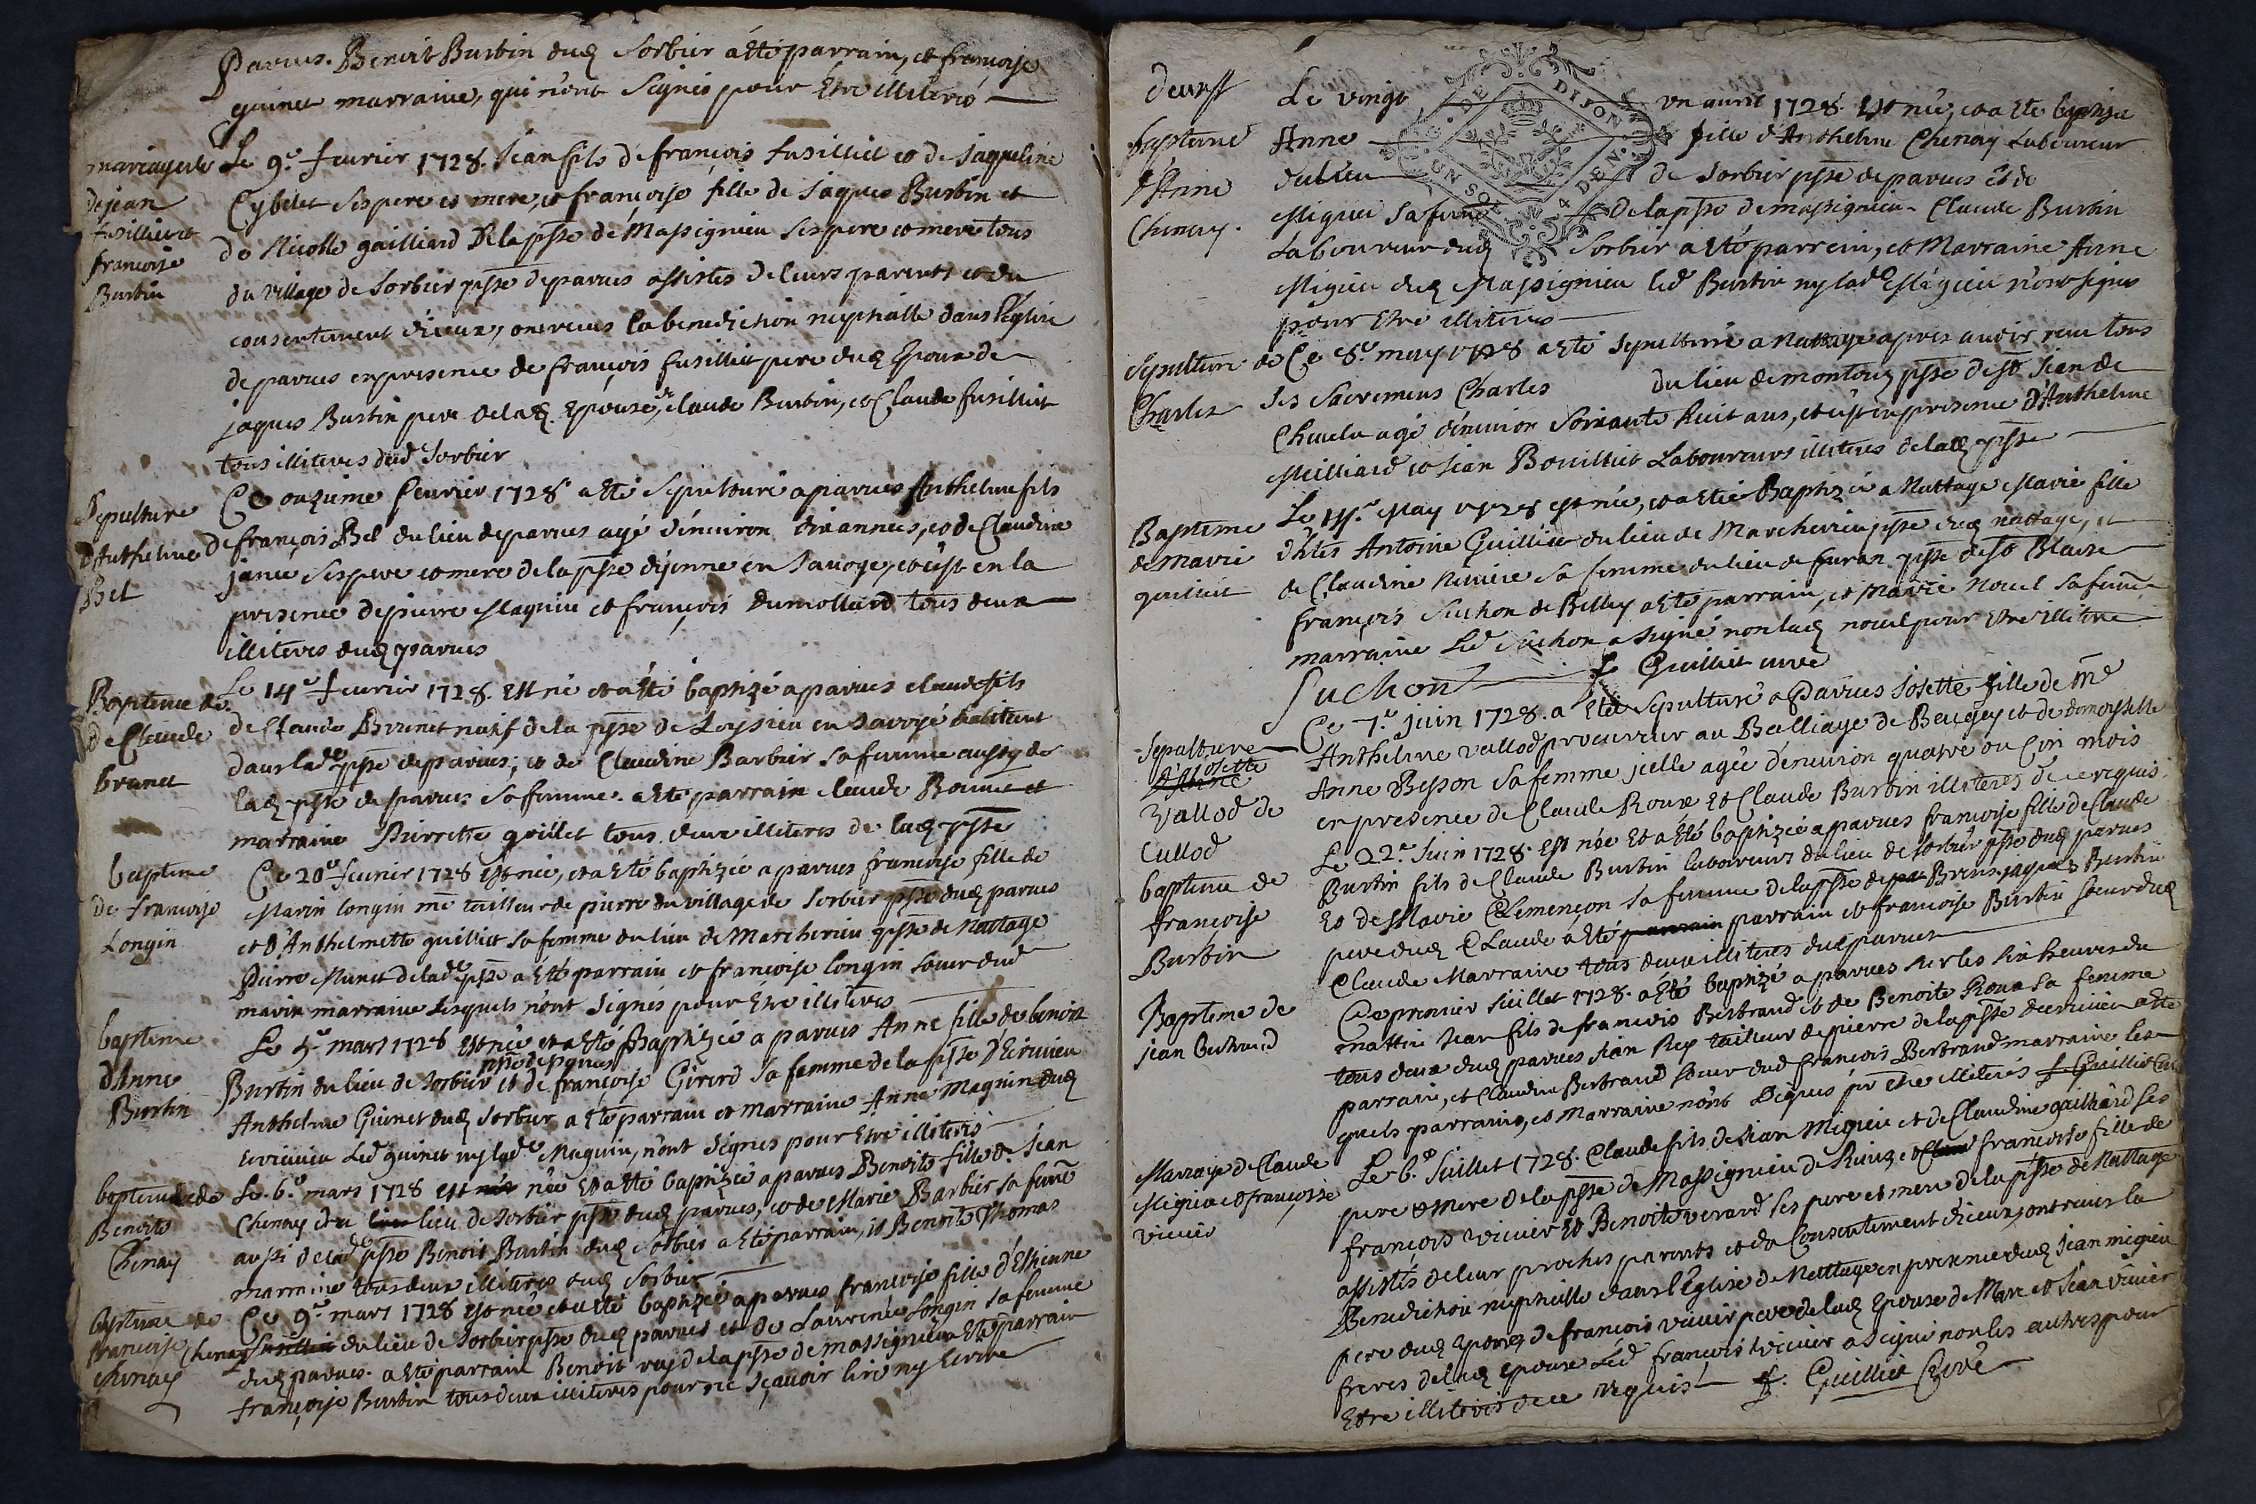 Parues. Benoit Burtin dud Sorbier a Eté parrain, et françoise
guinet marraine, qui n'ont Signés pour Etre illiterés
mariage
de jean
fusilliet et
françoise
Burtin
Le 9e. feurier 1728. Jean fils de françois fusilliet et de Jaqueline
Cybelet Ses pere et mere, et françoise fille de Jaques Burtin et
de Nicolle gailliard De la psse de Massignieu Ses pere et mere tous
du village de Sorbier psse de parues assistés de leurs parents et du
consentement d'iceux, ont receus la benediction nuptialle dans l'Eglise
de parues en presence de françois fusilliet pere dud Epoux de
jaques Burtin pere de lad. Epouse, de claude Burtin, et Claude fusilliet
tous illiteres dud Sorbier
Sepulture
d'Anthelme
Bel
Ce onzieme feurier 1728 a Eté Sepulturé a parues Anthelme fils
de françois Bel du lieu de parues agé d'enuiron dix années, et de Claudine
janin Ses pere et mere de la psse d'yenne en Sauoye, et c'est en la
presence de pierre Magnin et françois dumollard tous deux
illiteres dud parues
Bapteme de
de Claude
brunet
Le 14e feurier 1728. Est né et a Eté baptizé a parues claude fils
de Claude Brunet natif de la psse de Loyssieu en Savoye habitant
dans lade psse de parues; et de Claudine Barbier Sa femme aussy de
lad psse de parues Sa femme. a Eté parrain claude Bonne et
marraine Pierrette guillet tous deux illiteres de lad psse
baptême
de françoise
Longin
Ce 20e feurier 1728 Est née, et a Eté baptizée a parues françoise fille de
Marin longin me tailleur de pierre du village de Sorbier psse dud parues
et d'Anthelmette guilliet Sa femme du lieu de Marcherieu psse de Nattage
Pierre Munet de lade psse a Eté parrain et françoise longin Soeur dud
marin marraine Lesquels n'ont Signés pour Etre illiteres
baptême
d'Anne
Burtin
Le 4e mars 1728 Est née et a Eté Baptizée a parues Anne fille de benoit
psse de parues
Burtin du lieu de Sorbier et de françoise Girerd Sa femme de la psse d'Ecrivieu
Anthelme Guinet dud Sorbier a Eté parrain et marraine Anne Magnin dud
Ecrivieu Led guinet ny lade Magnin, n'ont Signés pour Etre illiterés
baptême de
Benoite
Chenay
Le 6e mars 1728 Est née née Et a Eté baptizée a parues Benoite fille de Jean
Chenay du lieu lieu de Sorbier psse dud parues, et de Marie Barbier Sa femme
aussi de lade psse Benoit Burtin dud Sorbier a Eté parrain, et Benoite Thomas
marraine tous deux illiteres dud Sorbier
baptême de
françoise
chenay
Ce 9e mars 1728 Est née et a Eté baptizée a parues françoise fille d'Ethienne
Chenay fusilliet du lieu de Sorbier psse dud parues et de Laurence Longin Sa femme
dud parues. a Eté parrain Benoit ruy de la psse de massignieu Eté parrain
françoise Burtin tous deux illiteres pour ne Sçauoir lire ny Ecrire
G. DE DIJON
baptême
d'Anne
Chenay.
Le vingt un auril 1728. Est née, et a Eté baptizée
Anne fille d'Anthelme Chenay Laboureur
du lieu de Sorbier psse de parues et de
Miguei Sa femme de la psse de massignieu Claude Burtin
Laboureur dud Sorbier a Eté parrein, et Marraine Anne
Migieu dud Massignieu led Burtin ny lade Migieu n'ont signés
pour Etre illiteres
Sepulture de
Charles
Ce 8e. may 1728 a Eté Sepulturé a Nattage apres auoir receu tous
Ses Sacremens Charles du lieu de montouz psse de st Jean de
Cheuelu agé d'enuiron Soixante huit ans, et c'est en presence d'Anthelme
Meilliard et Jean Bouilliet Laboureurs illiteres de lad psse
Baptême
de marie
guilliet
Le 14e. May 1728 Est née, et a Eté Baptizée a Nattage Marie fille
d'htes Antoine Guilliet du lieu de Marcherieu psse dud nattage, et
de Claudine Riviere Sa femme du lieu de furan psse de st Blaize
françois Suchon de Belley a Eté parrain, et Marie Nouel Sa femme
marraine Led Suchon a Signé non lad nouel pour Etre illitere
Suchon f. Guilliet curé
Sepulture
d'Anne
Josette
Vallod de
Cullod
Ce 7e. juin 1728. a Eté Sepulturé a Parues Josette fille de me
Anthelme vallod procureur au Balliage de Beugey et de demoyselle
Anne Besson Sa femme jcelle agée d'enuiron quatre ou Cin mois
en presence de Claude Roux Et Claude Burtin illiteres de ce requis.
baptême de
françoise
Burtin
Le 22e. Juin 1728. Est née Et a Eté baptizée a parues françoise fille de Claude
Burtin fils de Claude Burtin laboureurs du lieu de Sorbier psse dud parues
Et de Marie Clemençon Sa femme de la psse de pa Brens. jaques Burtin
pere dud Claude a Eté parrain parrain et françoise Burtin Soeur dud
Claude Marraine tous deux illiteres dud parues
Baptême de
jean bertrand
Ce premier Juillet 1728. a Eté baptizé a parues sur les six heures du
mattin Jean fils de françois Bertrand et de Benoite Roux Sa femme
tous deux dud parues Jean Rey tailleur de pierre de la psse d'ecrivieu a Eté
parrain, et Claudine Bertrand Soeur dud françois Bertrand marraine les
quels parrain, et marraine n'ont Signés pr etre illiterés f. Guilliet Curé
Marraige de Claude
Migieu et françoise
viuier
Le 6e Juillet 1728. Claude fils de Jean Migieu et de Claudine gailliard Ses
pere et mere de la psse de Massignieu de Riuez et françoise fille de
françois viuier Et Benoite verard Ses pere et mere de la psse de Nattage
assistés de leur proches parents et du Consentement d'iceux, ont receus la
Benediction nuptialle dans l'Eglise de Nattage en presence dud Jean migieu
pere dud Epoux, de françois viuier pere de lad Epouse de Marc et Jean viuier
freres de lad Epouse Led françois viuier a Signé non les autres pour
Etre illiterés de ce requis f. Guilliet Curé